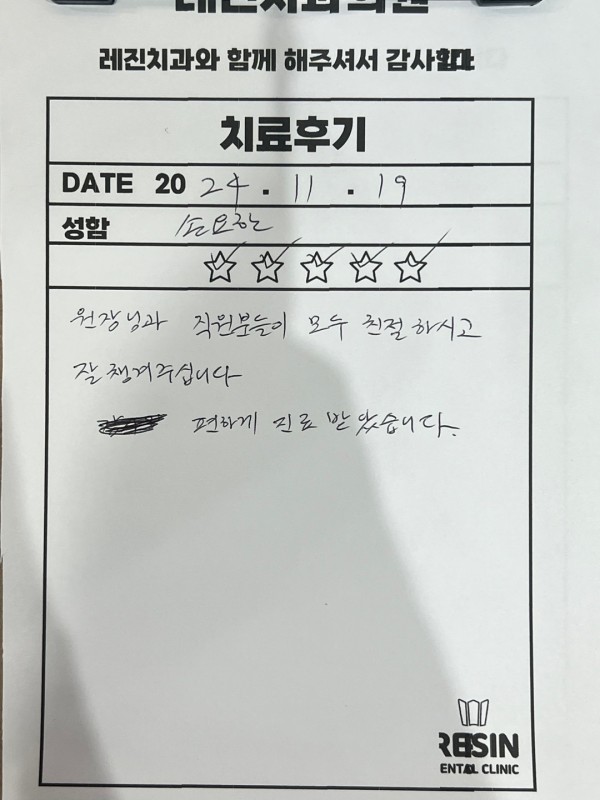 레진치과의원
레진치과와 함께 해주셔서 감사합니다
치료후기
DATE 2024.11.19
성함 손요한
원장님과 직원분들이 모두 친절하시고
잘 챙겨주십니다
편하게 진료 받았습니다.
RESIN
DENTAL CLINIC